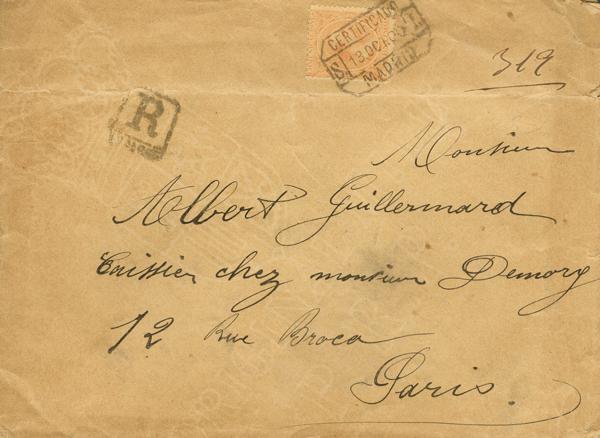 CERTIFICADO
13 OCT 05
MADRID
319
R
Monsieur
Albert Guillermard
Caissier chez monsieur Demory
12 Rue Broca
Paris.